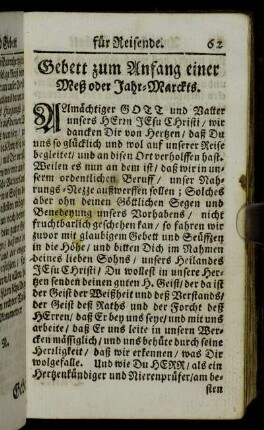 für Reisende. 62
Gebett zum Anfang einer
Meß oder Jahr-Marckts.
ALlmächtiger GOTT und Vatter
unsers HErrn JEsu Christi / wir
dancken Dir von Hertzen / daß Du
uns so glücklich und wol auf unserer Reise
begleitet / und an disen Ort verholffen hast.
Weilen es nun an dem ist / daß wir in un-
serm ordentlichem Beruff / unser Nah-
rungs-Nezze außwerffen sollen ; Solches
aber ohn deinen Göttlichen Segen und
Benedeyung unsers Vorhabens / nicht
fruchtbarlich geschehen kan / so fahren wir
zuvor mit glaubigem Gebett und Seufftzen
in die Höhe / und bitten Dich im Nahmen
deines lieben Sohns / unsers Heilandes
JEsu Christi / Du wollest in unsere Her-
tzen senden deinen guten H. Geist / der da ist
der Geist der Weißheit und deß Verstands /
der Geist deß Raths und der Forcht deß
HErren / daß Er bey uns seye / und mit uns
arbeite / daß Er uns leite in unsern Wer-
cken mässiglich / und uns behüte durch seine
Herrligkeit / daß wir erkennen / was Dir
wolgefalle. Und wie Du HERR / als ein
Hertzenkündiger und Nierenprüfer / am be-
sten